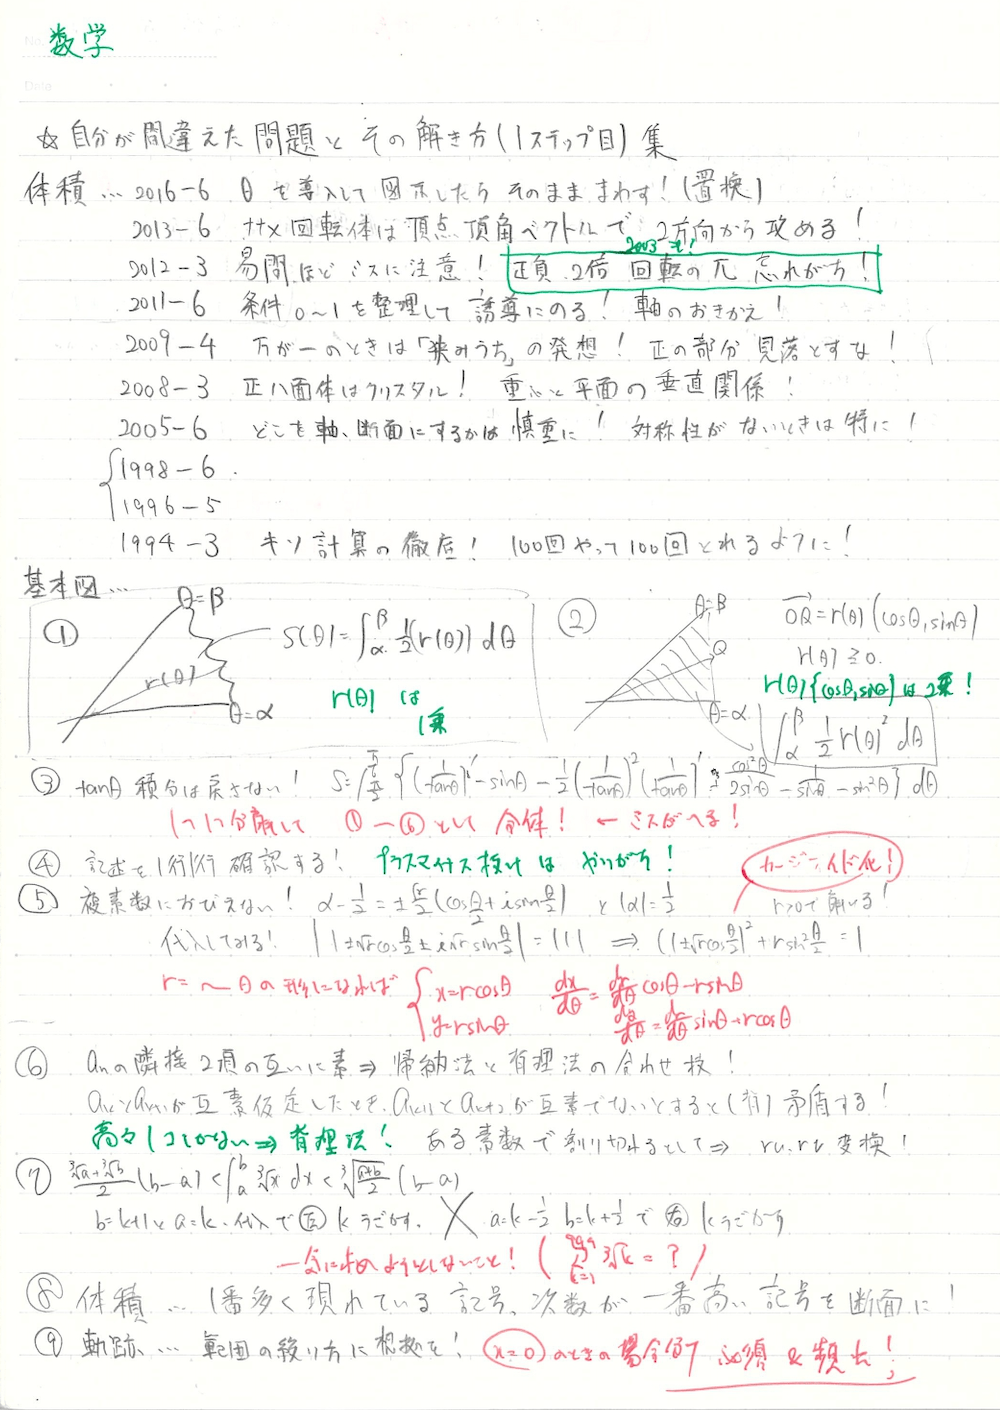 数学
☆ 自分が間違えた問題とその解き方(1ステップ目)集
体積… 2016-6 θを導入して図示したらそのまままわす!(置換)
2013-6 ナナメ回転体は頂点頂角ベクトルで2方向から攻める!
2003も!
2012-3 易問ほどミスに注意! 正負 2倍 回転のπ 忘れがち!
2011-6 条件0~1を整理して誘導にのる! 軸のおきかえ!
2009-4 万が一のときは「挟みうち」の発想! 正の部分見落とすな!
2008-3 正八面体はクリスタル! 重心と平面の垂直関係!
2005-6 どこを軸、断面にするかは慎重に! 対称性がないときは特に!
1998-6
1996-5
1994-3 キソ計算の徹底! 100回やって100回とれるように!
基本図…
① θ=β r(θ) θ=α S(θ)=∫α^β 1/2(r(θ)) dθ
r(θ) は
1乗
② θ=β Q θ=α →OQ=r(θ)(cosθ, sinθ)
r(θ)≧0.
r(θ){cosθ, sinθ}は2乗!
∫α^β 1/2 r(θ)² dθ
③ tanθ 積分は戻さない! S=∫ {(1/tanθ)'-sinθ-1/2(1/tanθ)²(1/tanθ)' cos²θ/2sinθ - 1/sinθ - sin²θ} dθ
1つ1つ分離して ①~⑥として合体! ←ミスがへる!
④ 記述を1行1行確認する! プラスマイナス検討はやりがち!
カージオイド化!
⑤ 複素数におびえない! α-1/2=±√r/2(cosθ/2+isinθ/2) と|α|=1/2 r>0で解いる!
代入してみる! |1±√rcosθ/2±i√rsinθ/2|=|1| ⇒ (1±√rcosθ/2)²+rsin²θ/2=1
r=~θの形になれば { x=rcosθ dx/dθ=dr/dθ cosθ-rsinθ
y=rsinθ dy/dθ=dr/dθ sinθ+rcosθ
⑥ anの隣接2項の互いに素⇒帰納法と背理法の合わせ技!
akとak+1が互素仮定したとき、ak+1とak+2が互素でないとすると(背)矛盾する!
高々1コしかない⇒背理法! ある素数で割り切れるとして⇒ 変換!
⑦ (∛a+∛b)/2 (b-a)<∫a^b ∛x dx<∛((a+b)/2) (b-a)
b=k+1とa=k 代入で㊧kうごかす. a=k-1/2 b=k+1/2で㊨kうごかす
一気に求めようとしないこと! (Σ k=1 999 ∛k=?)
⑧ 体積… 1番多く現れている記号、次数が一番高い記号を断面に!
⑨ 軌跡… 範囲の絞り方に根拠を! x=0のときの場合分け 必須&頻出!